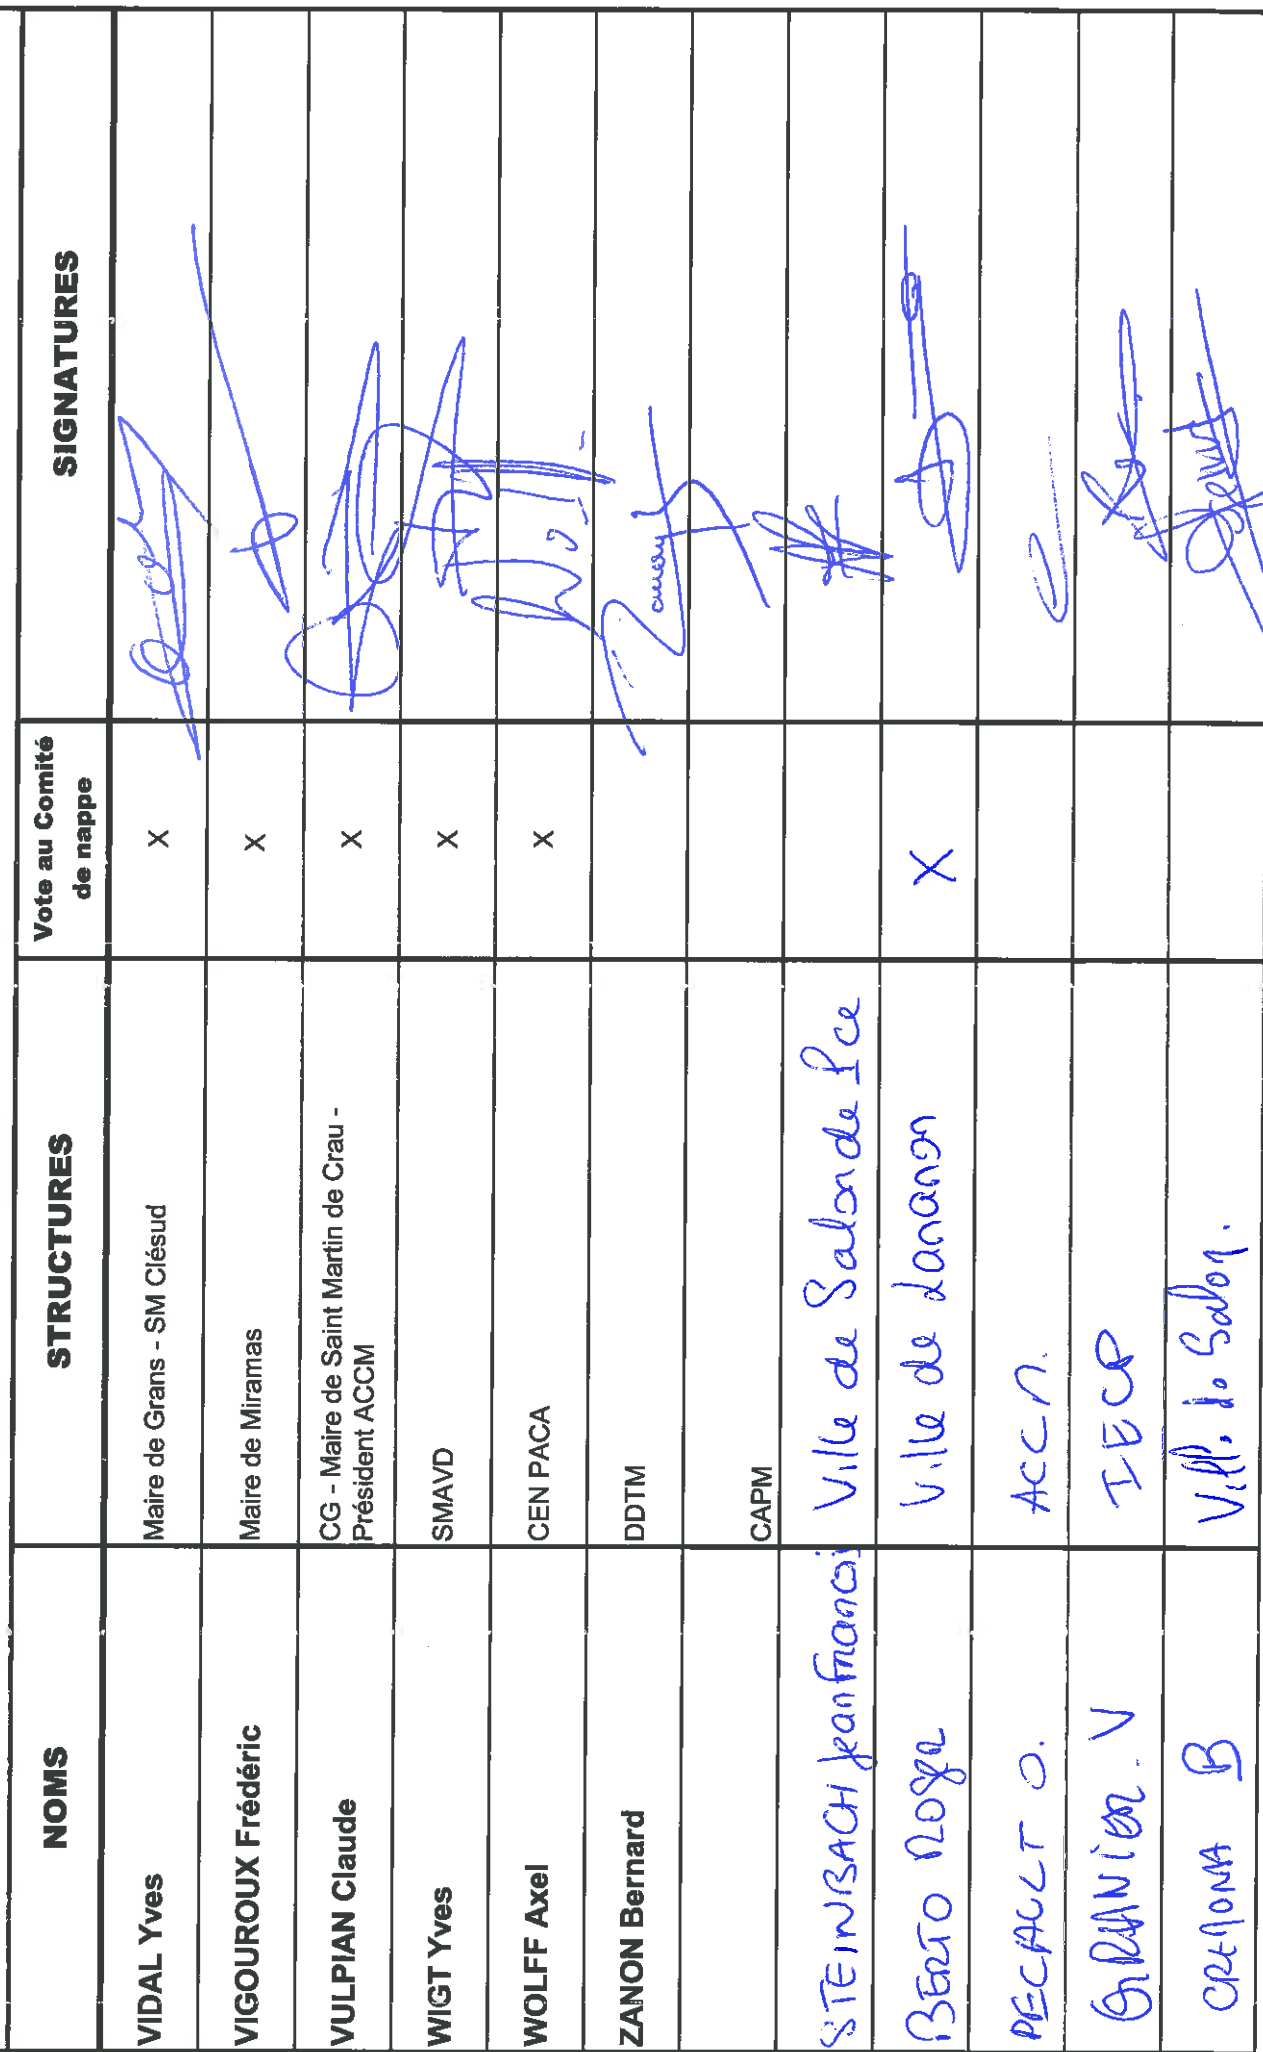 NOMS STRUCTURES Vote au Comité de nappe SIGNATURES
VIDAL Yves Maire de Grans - SM Clésud X
VIGOUROUX Frédéric Maire de Miramas X
VULPIAN Claude CG - Maire de Saint Martin de Crau -
Président ACCM X
WIGT Yves SMAVD X
WOLFF Axel CEN PACA X
ZANON Bernard DDTM
CAPM
STEINBACH Jean François Ville de Salon de Pce
BERTO Roger Ville de Lamanon X
PECAULT O. ACCM.
GRANIER. V IECP
CREMONA B Ville de Salon.